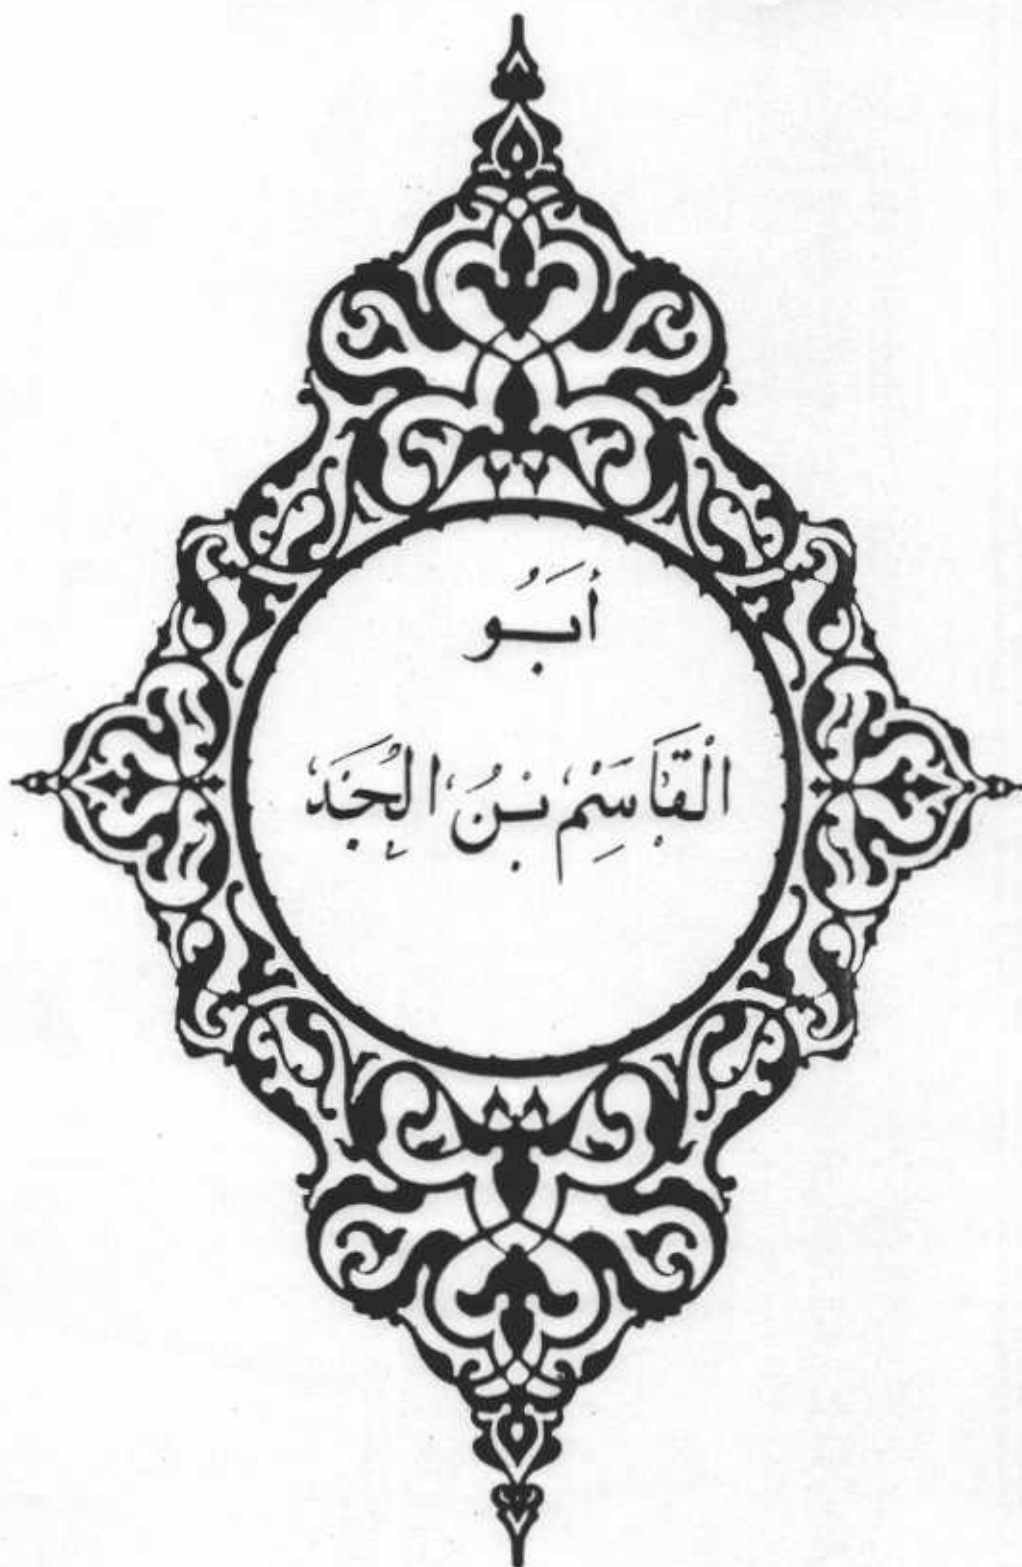 أبُو
الْقَاسِمْ بْنُ الْجَدّ